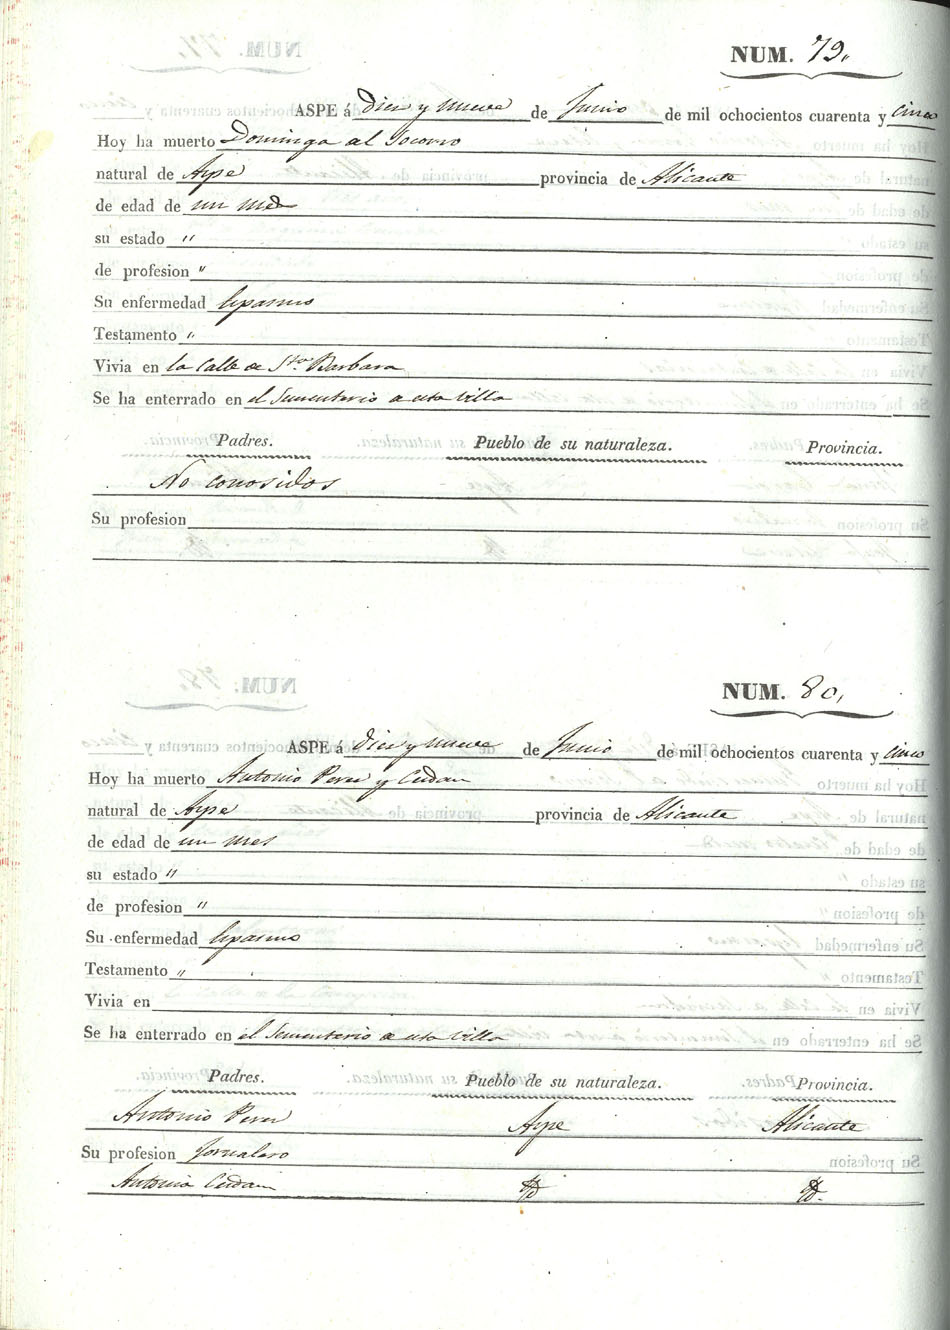 NUM. 79.
ASPE á Diez y nueve de Junio de mil ochocientos cuarenta y cinco
Hoy ha muerto Dominga al Socorro
natural de Aspe provincia de Alicante
de edad de un mes
su estado "
de profesion "
Su enfermedad Espasmo
Testamento "
Vivia en la Calle de Sta. Barbara
Se ha enterrado en el Sementerio de esta Villa
Padres. Pueblo de su naturaleza. Provincia.
No conosidos
Su profesion
NUM. 80,
ASPE á Diez y nueve de Junio de mil ochocientos cuarenta y cinco
Hoy ha muerto Antonio Perez y
natural de Aspe provincia de Alicante
de edad de un mes
su estado "
de profesion "
Su enfermedad Espasmo
Testamento "
Vivia en
Se ha enterrado en el Sementerio de esta Villa
Padres. Pueblo de su naturaleza. Provincia.
Antonio Perez Aspe Alicante
Su profesion Jornalero
Antonia